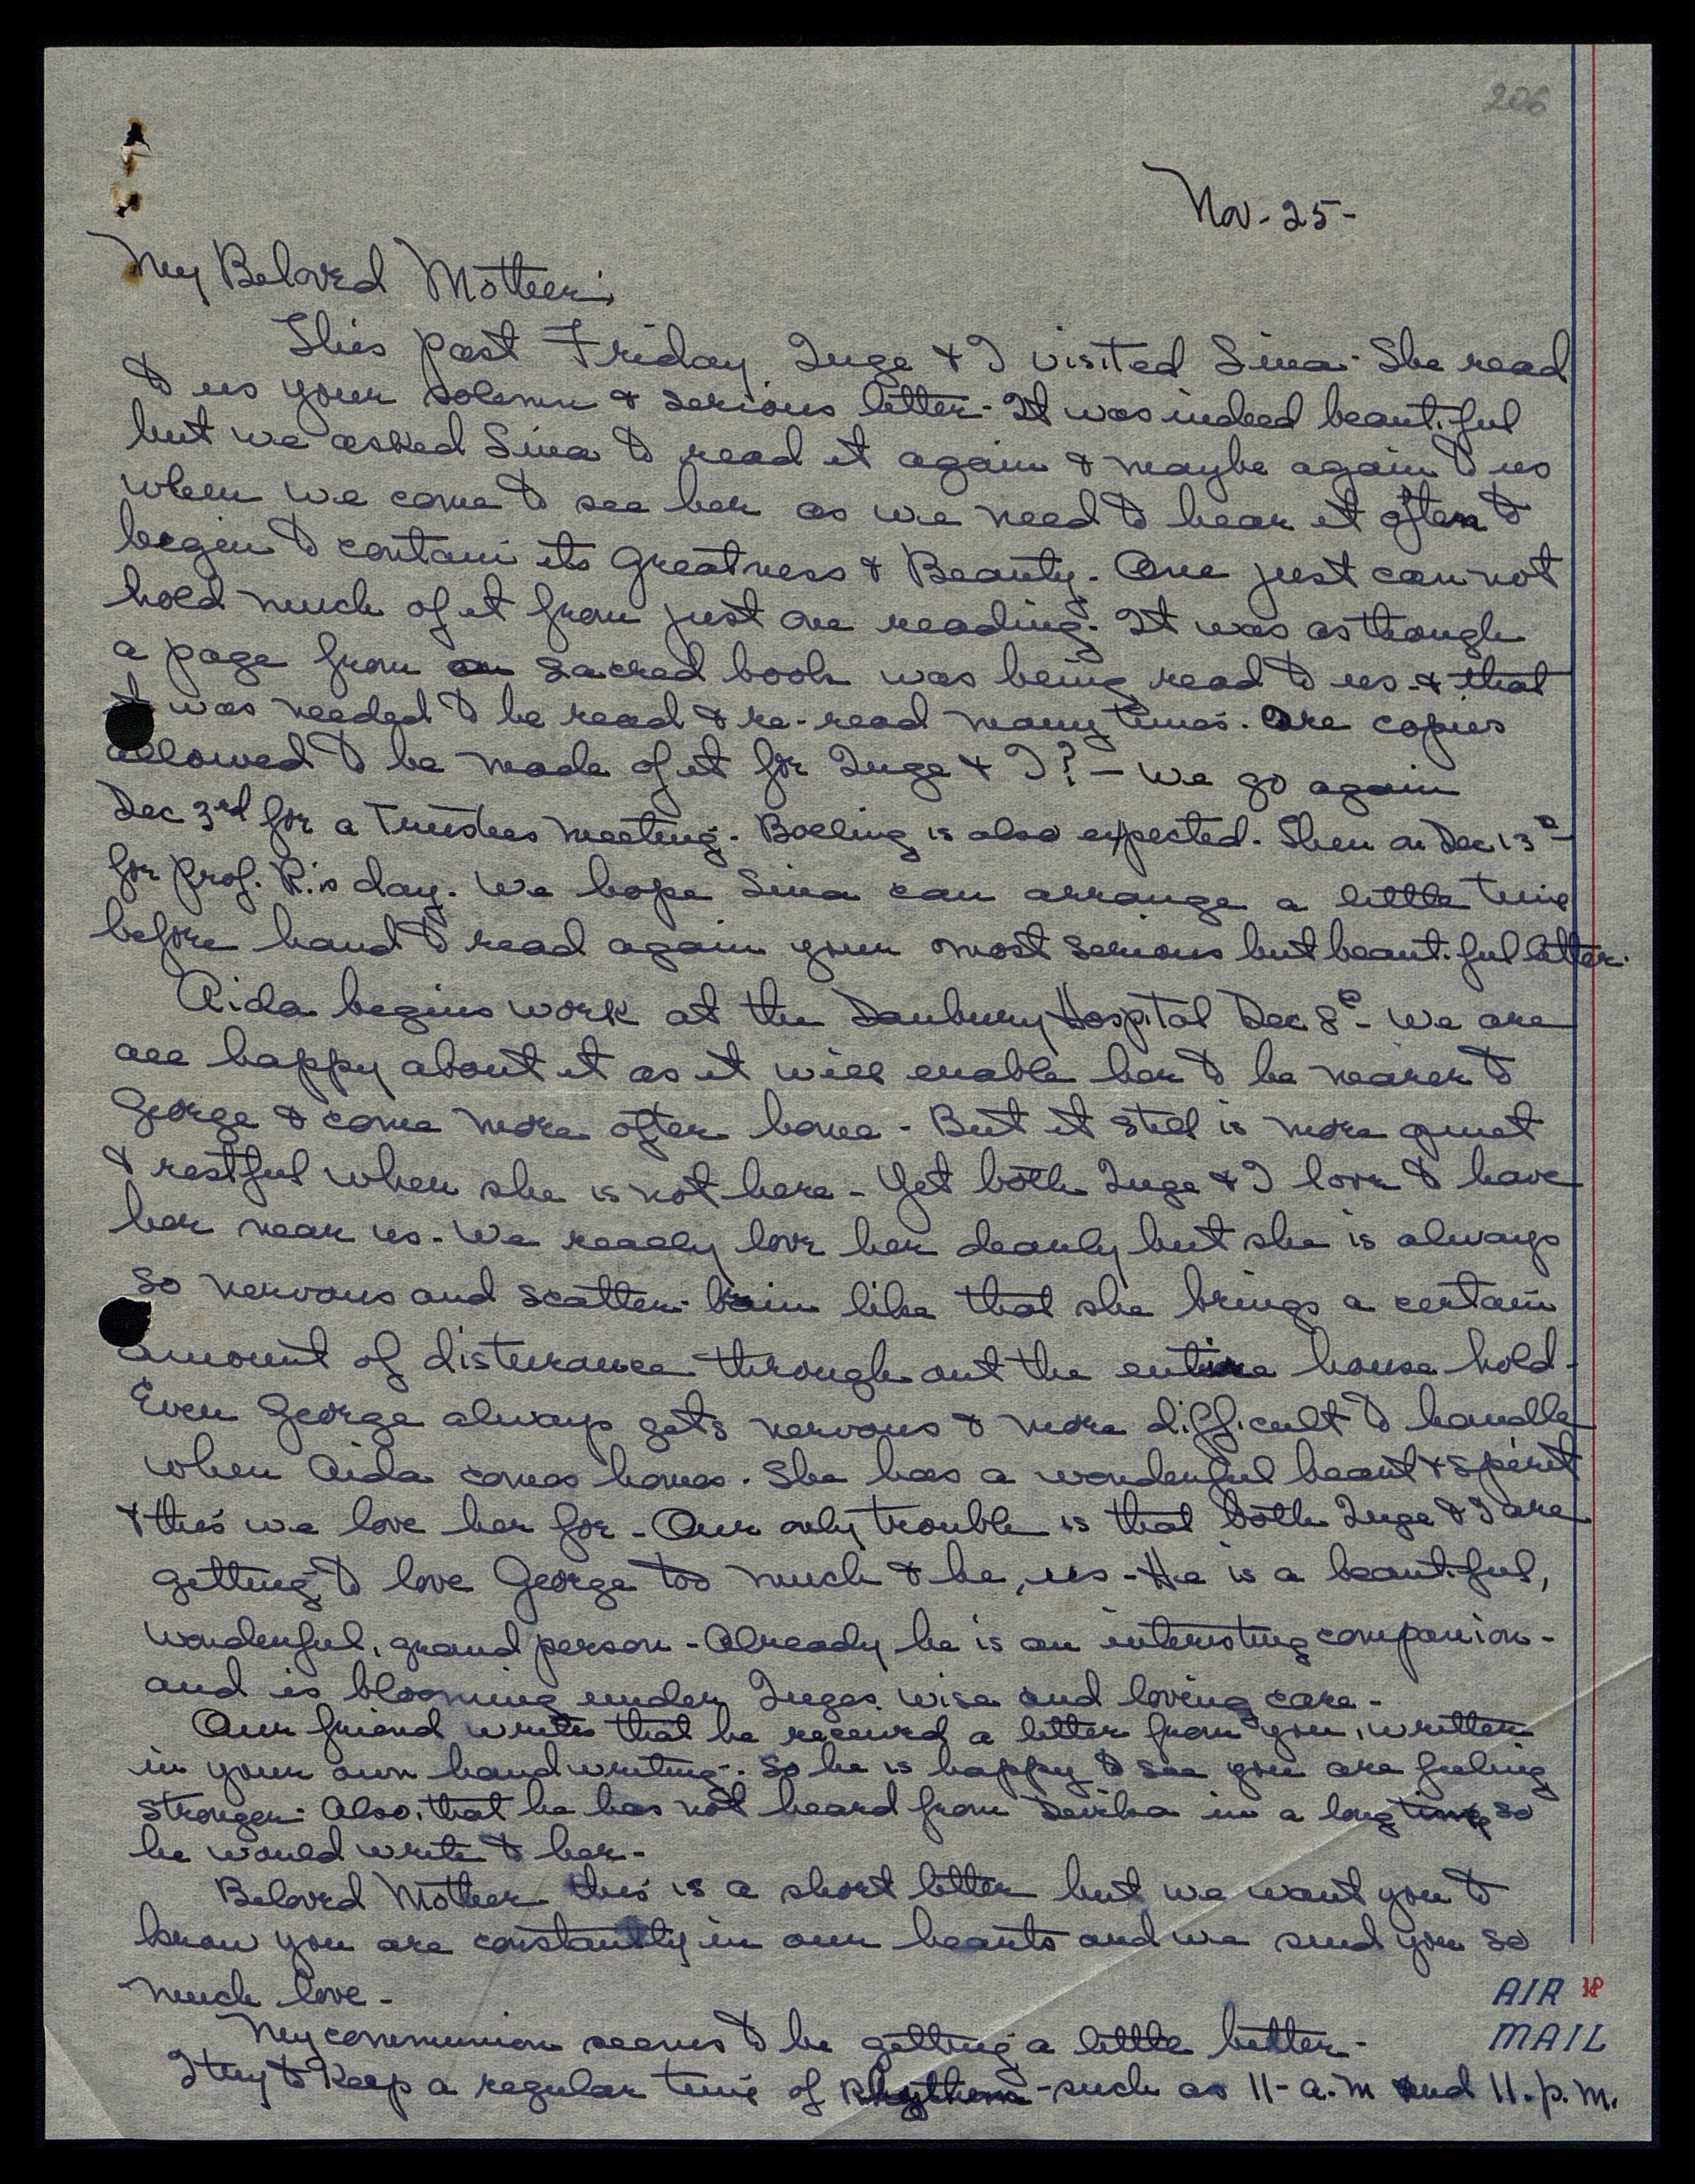 206
Nov. 25-
My Beloved Mother;
This past Friday, Inge & I visited Sina. She read
to us your solemn & serious letter. It was indeed beautiful
but we asked Sina to read it again & maybe again to us
when we come to see her as we need to hear it often to
begin to contain its Greatness & Beauty. One just can not
hold much of it from just one reading. It was as though
a page from sacred book was being read to us & that
it was needed to be read & re-read many times. Are copies
allowed to be made of it for Inge & I? - We go again
Dec 3rd for a Trustees meeting. Bolling is also expected. Then on Dec 13th
for Prof. R.'s day. We hope Sina can arrange a little time
before hand to read again your most serious but beautiful letter.
Aida begins work at the Danbury Hospital Dec 8th - We are
all happy about it as it will enable her to be nearer to
George & come more often home - But it still is more quiet
& restful when she is not here - Yet both Inge & I love to have
her near us. We really love her dearly but she is always
so nervous and scatter-brain like that she brings a certain
amount of disturance through out the entire house hold.
Even George always gets nervous & more difficult to handle
when Aida comes homes. She has a wonderful heart & spirit
& this we love her for - Our only trouble is that both Inge & I are
getting to love George too much & he, us - He is a beautiful,
wonderful, grand person - Already he is an interesting companion -
and is blooming under Inges wise and loving care -
Our friend writes that he received a letter from you, written
in your own hand writing. So he is happy to see you are feeling
stronger. Also, that he has not heard from Devika in a long time so
he would write to her -
Beloved Mother this is a short letter but we want you to
know you are constantly in our hearts and we send you so
much love -
My communion seems to be getting a little better -
I try to keep a regular time of Rhythem - such as 11-a.m and 11.p.m.
AIR
MAIL